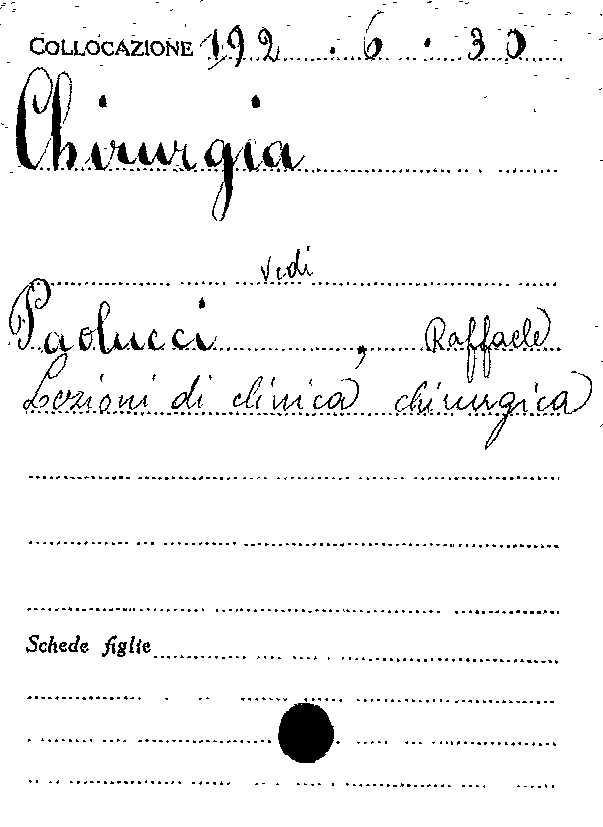 COLLOCAZIONE 192 . 6 . 30
Chirurgia
vedi
Paolucci , Raffaele
Lezioni di clinica chirurgica
Schede figlie